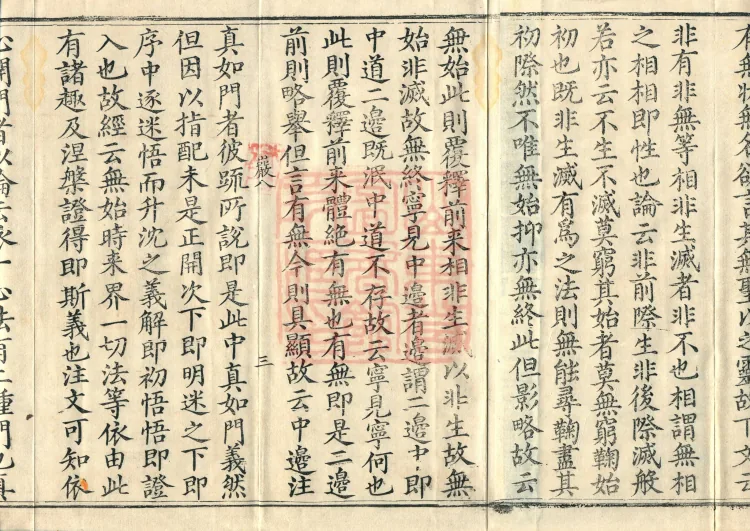 有無狀無名欲言其無聖以之靈故下文云
非有非無等相非生滅者非不也相謂無相
之相相即性也論云非前際生非後際滅般
若亦云不生不滅莫窮其始者莫無窮鞠始
初也既非生滅有為之法則無能尋鞠盡其
初際然不唯無始抑亦無終此但影略故云
無始此則覆釋前来相非生滅以非生故無
始非滅故無終寧見中邊者邊謂二邊中即
中道二邊既泯中道不存故云寧見寧何也
此則覆釋前来體絶有無也有無即是二邊
前則略舉但言有無今則具顯故云中邊注
嚴八
三
真如門者彼䟽所說即是此中真如門義然
但因以指配未是正開次下即明迷之下即
序中逐迷悟而升沈之義解即初悟悟即證
入也故經云無始時来界一切法等依由此
有諸趣及涅槃證得即斯義也注文可知依
心開門者以論云依一心法有二種門也真